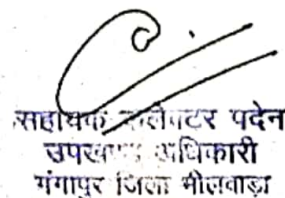 सहायक कलेक्टर पदेन
उपखण्ड अधिकारी
गंगापुर जिला भीलवाड़ा